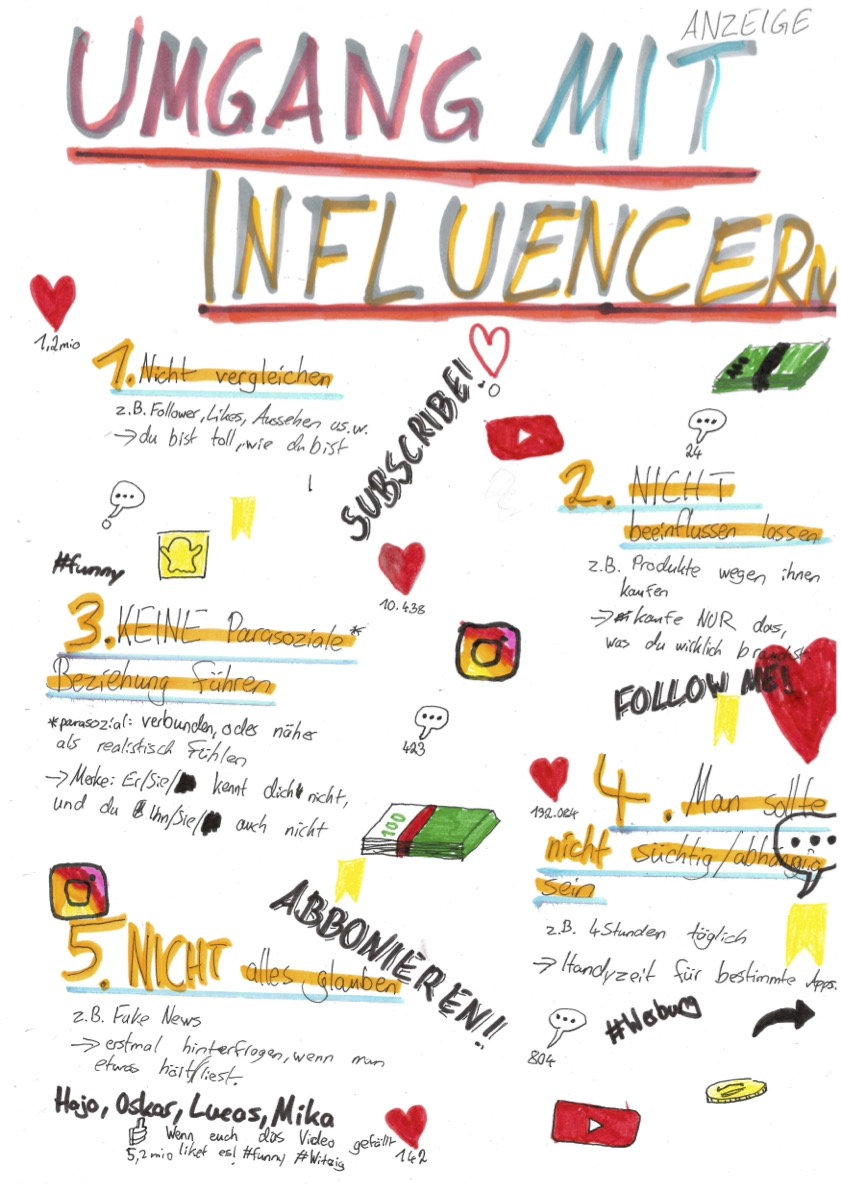 ANZEIGE
UMGANG MIT
INFLUENCERN
1,2mio
1. Nicht vergleichen
z.B. Follower, Likes, Aussehen us.w.
→ du bist toll, wie du bist
SUBSCRIBE!
24
2. NICHT
beeinflussen lassen
z.B. Produkte wegen ihnen
kaufen
→ kaufe NUR das,
was du wirklich brauchst
#funny
10.438
3. KEINE Parasoziale*
Beziehung führen
*parasozial: verbunden, oder näher
als realistisch fühlen
→ Merke: Er/Sie/ kennt dich nicht,
und du Ihn/Sie/ auch nicht
423
FOLLOW ME!
192.084
4. Man sollte
nicht süchtig/abhängig
sein
z.B. 4 Stunden täglich
→ Handyzeit für bestimmte Apps.
100
ABBONIEREN!!
5. NICHT alles glauben
z.B. Fake News
→ erstmal hinterfragen, wenn man
etwas hört/liest.
804
#Werbung
Hajo, Oskar, Lucas, Mika
Wenn euch das Video gefällt
5,2mio liket es! #funny #Witzig
142